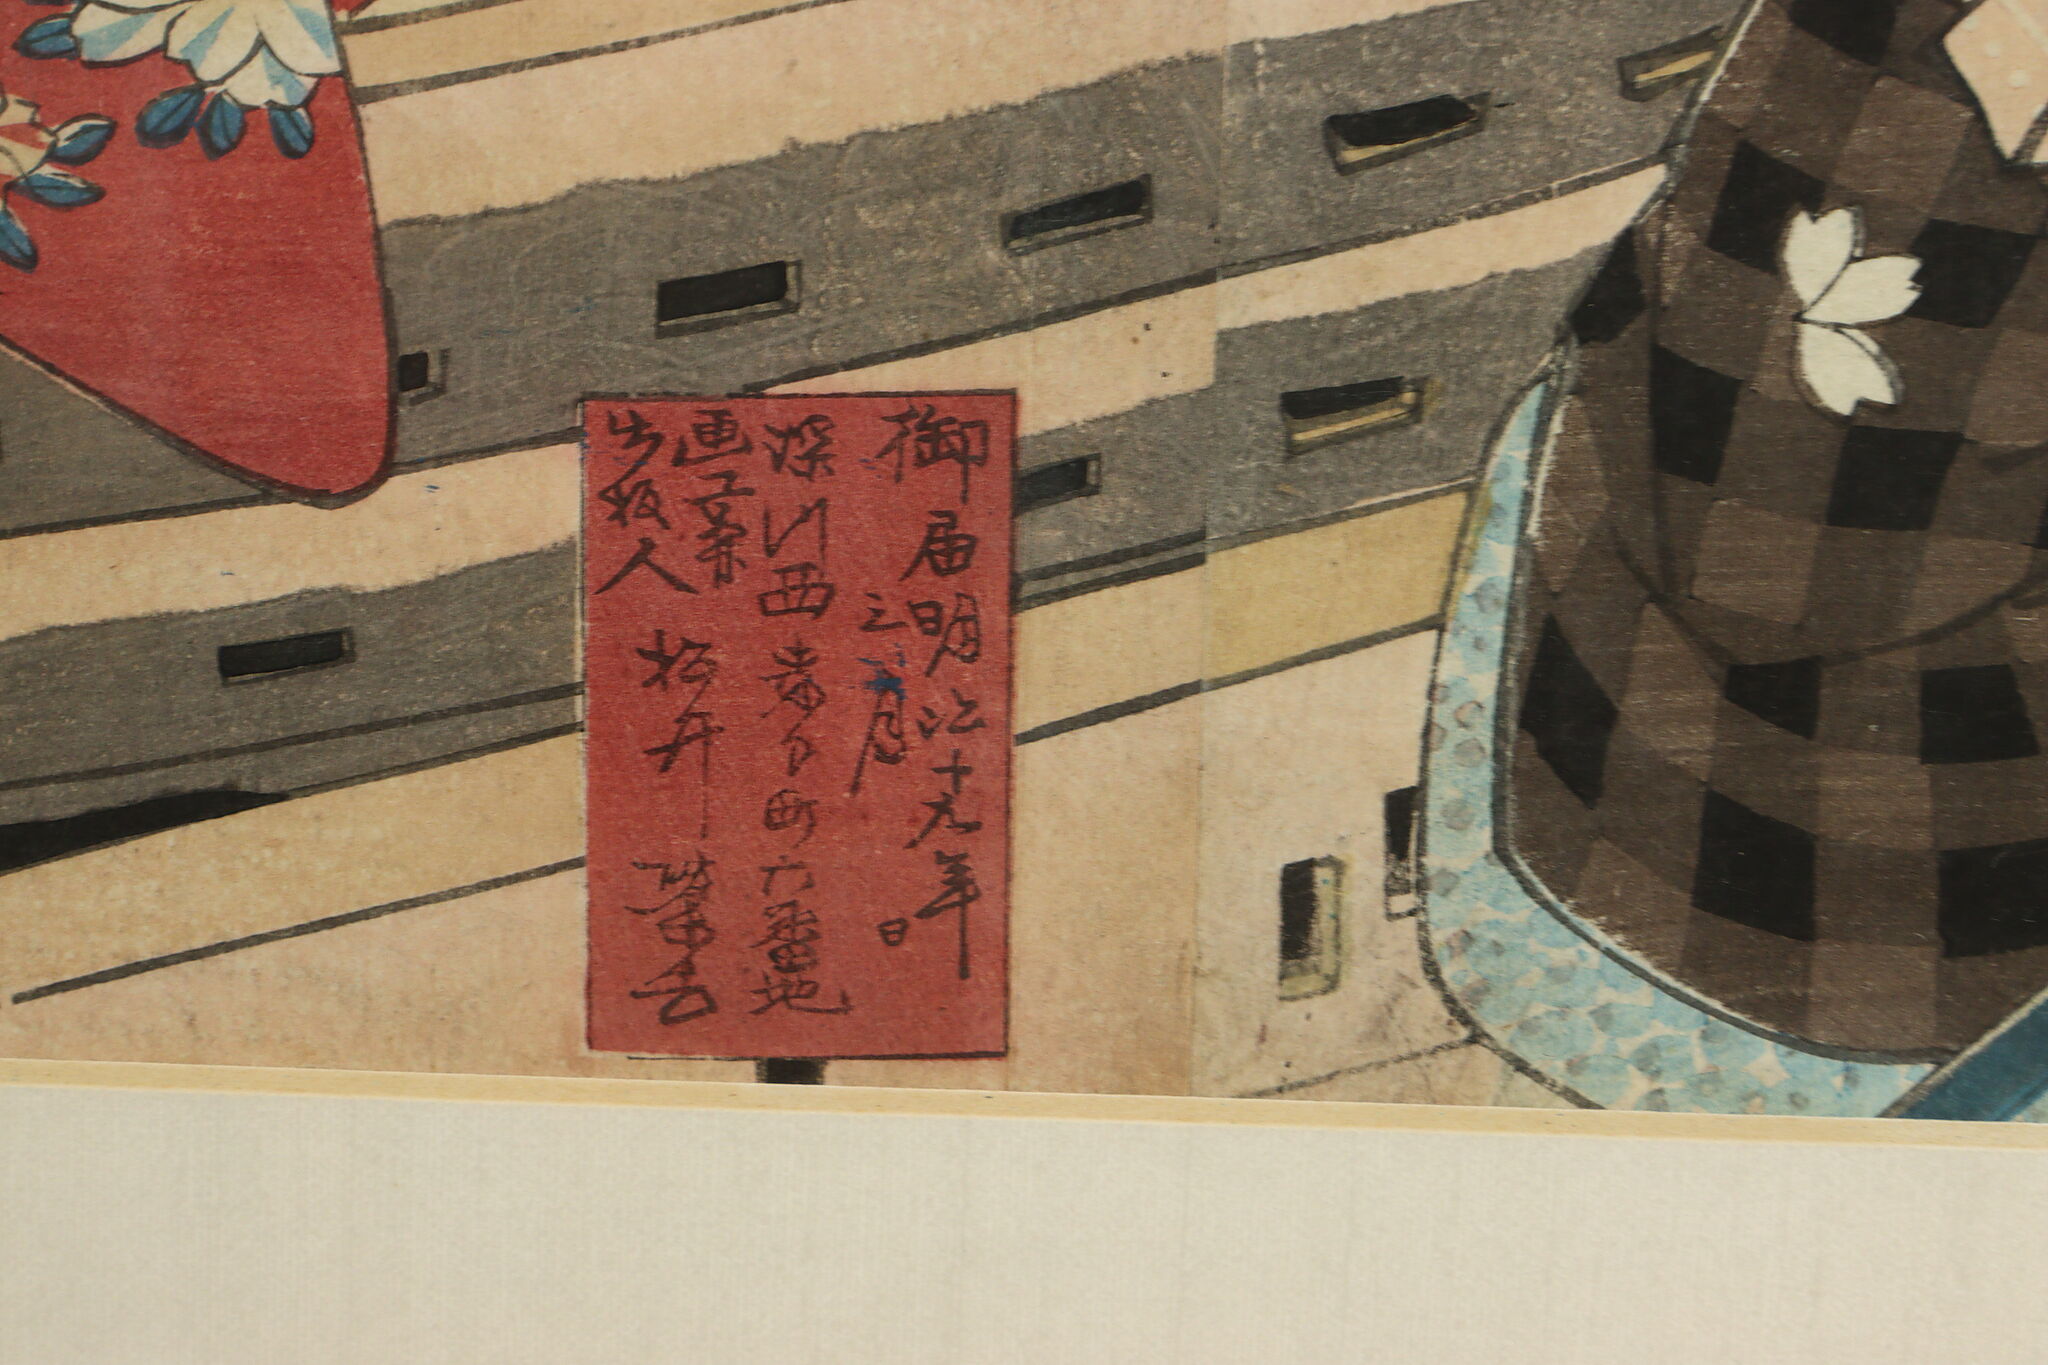 御届明治十九年
三月　日
深川西森下町六番地
画工兼
出板人
梅井